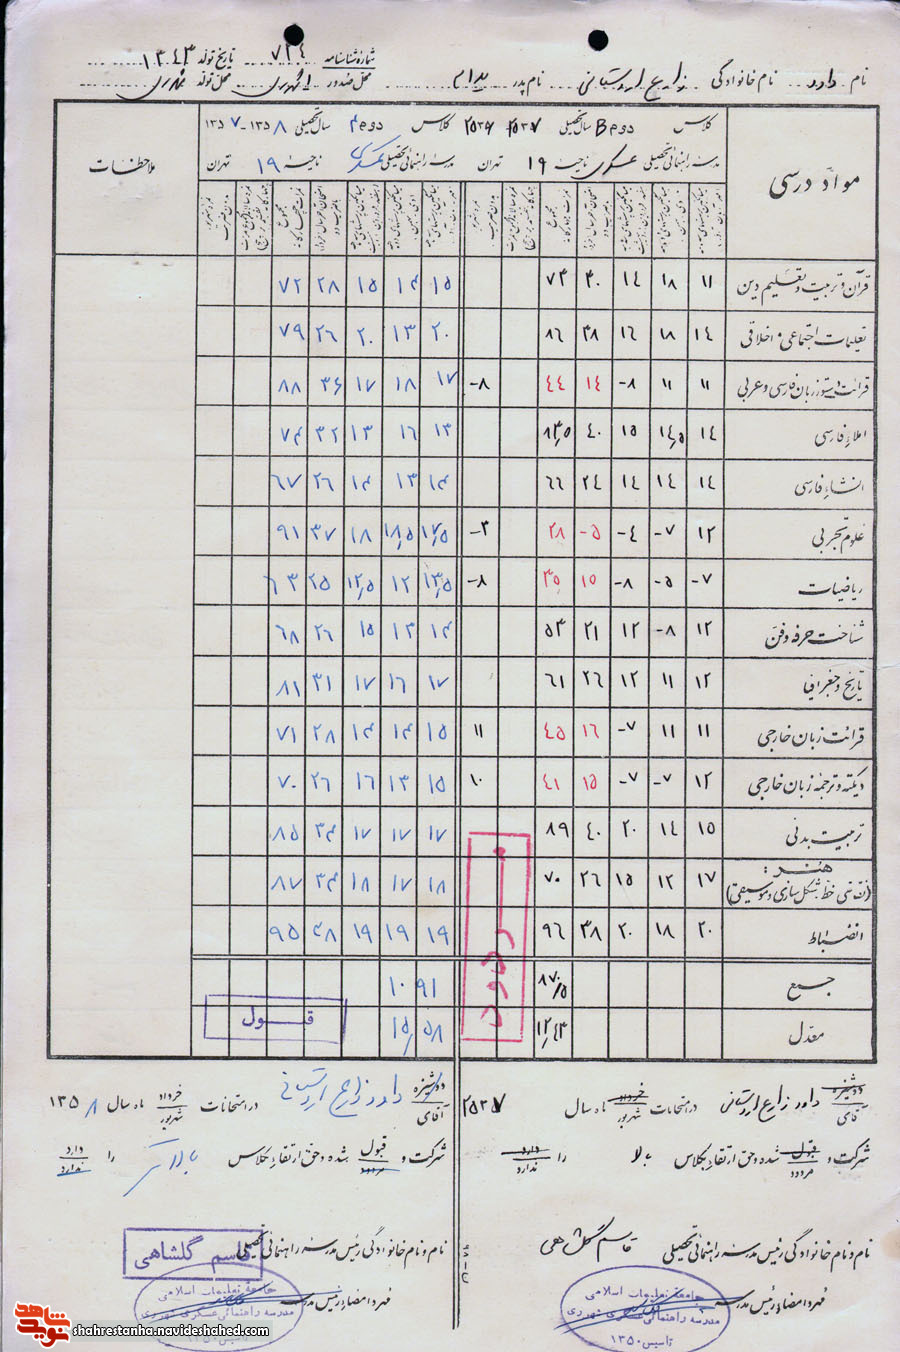 شماره شناسنامه ۷۳۴ تاریخ تولد ۱۳۴۳
نام داود نام خانوادگی زارع اردستانی نام پدر محل صدور شهرری محل تولد شهرری
مواد درسی
کلاس دوم B سال تحصیلی ۲۵۳۷ ۲۵۳۶
مدرسه راهنمائی تحصیلی عسکری ناحیه ۱۹ تهران
کلاس دوم سال تحصیلی ۱۳۵۸ - ۱۳۵۷
مدرسه راهنمائی تحصیلی عسکری ناحیه ۱۹ تهران
ملاحظات
قرآن و تربیت و تعلیم دین ۱۱ ۱۸ ۱۴ ۳۰ ۷۳ ۱۵ ۱۴ ۱۵ ۲۸ ۷۲
تعلیمات اجتماعی و اخلاقی ۱۴ ۱۸ ۱۶ ۳۸ ۸۶ ۲۰ ۱۳ ۲۰ ۲۶ ۷۹
قرائت و دستور زبان فارسی و عربی ۱۱ ۱۱ ۸- ۱۴ ۴۴ ۸- ۱۷ ۱۸ ۱۷ ۳۶ ۸۸
املاء فارسی ۱۴ ۱۴٫۵ ۱۵ ۴۰ ۸۳٫۵ ۱۳ ۱۶ ۱۳ ۳۲ ۷۴
انشاء فارسی ۱۴ ۱۴ ۱۴ ۲۴ ۶۶ ۱۴ ۱۳ ۱۴ ۲۶ ۶۷
علوم تجربی ۱۲ ۷- ۴- ۵- ۲۸ ۳- ۱۷٫۵ ۱۸٫۵ ۱۸ ۳۷ ۹۱
ریاضیات ۷- ۵- ۸- ۱۵ ۳۵ ۸- ۱۳٫۵ ۱۲ ۱۲٫۵ ۲۵ ۶۳
شناخت حرفه و فن ۱۲ ۸- ۱۲ ۲۱ ۵۳ ۱۴ ۱۳ ۱۵ ۲۶ ۶۸
تاریخ و جغرافیا ۱۲ ۱۱ ۱۲ ۲۶ ۶۱ ۱۷ ۱۶ ۱۷ ۳۱ ۸۱
قرائت زبان خارجی ۱۱ ۱۱ ۷- ۱۶ ۴۵ ۱۱ ۱۵ ۱۴ ۱۴ ۲۸ ۷۱
دیکته و ترجمه زبان خارجی ۱۲ ۷- ۷- ۱۵ ۴۱ ۱۰ ۱۵ ۱۳ ۱۶ ۲۶ ۷۰
تربیت بدنی ۱۵ ۱۴ ۲۰ ۴۰ ۸۹ ۱۷ ۱۷ ۱۷ ۳۴ ۸۵
هنر:
(نقاشی خط شکل سازی و موسیقی) ۱۷ ۱۲ ۱۵ ۲۶ ۷۰ ۱۸ ۱۷ ۱۸ ۳۴ ۸۷
انضباط ۲۰ ۱۸ ۲۰ ۳۸ ۹۶ ۱۹ ۱۹ ۱۹ ۳۸ ۹۵
جمع ۸۷۰٫۵ ۱۰۹۱
معدل ۱۲٫۴۳ ۱۵٫۵۸
مردود
قبول
دوشیزه آقای داود زارع اردستانی در امتحانات خرداد شهریور ماه سال ۲۵۳۷
شرکت و قبول مردود شده و حق ارتقاء بکلاس بالا را دارد ندارد
نام و نام خانوادگی رئیس مدرسه راهنمائی تحصیلی قاسم گلشاهی
مهر و امضاء رئیس مدرسه
جامعه تعلیمات اسلامی
مدرسه راهنمائی عسکری شهرری
تاسیس ۱۳۵۰
دوشیزه آقای داود زارع اردستانی در امتحانات خرداد شهریور ماه سال ۱۳۵۸
شرکت و قبول مردود شده و حق ارتقاء بکلاس بالاتر را دارد ندارد
نام و نام خانوادگی رئیس مدرسه راهنمائی تحصیلی قاسم گلشاهی
مهر و امضاء رئیس مدرسه
جامعه تعلیمات اسلامی
مدرسه راهنمائی عسکری شهرری
تاسیس ۱۳۵۰
نوید شاهد
shahrestanha-navideshahed.com